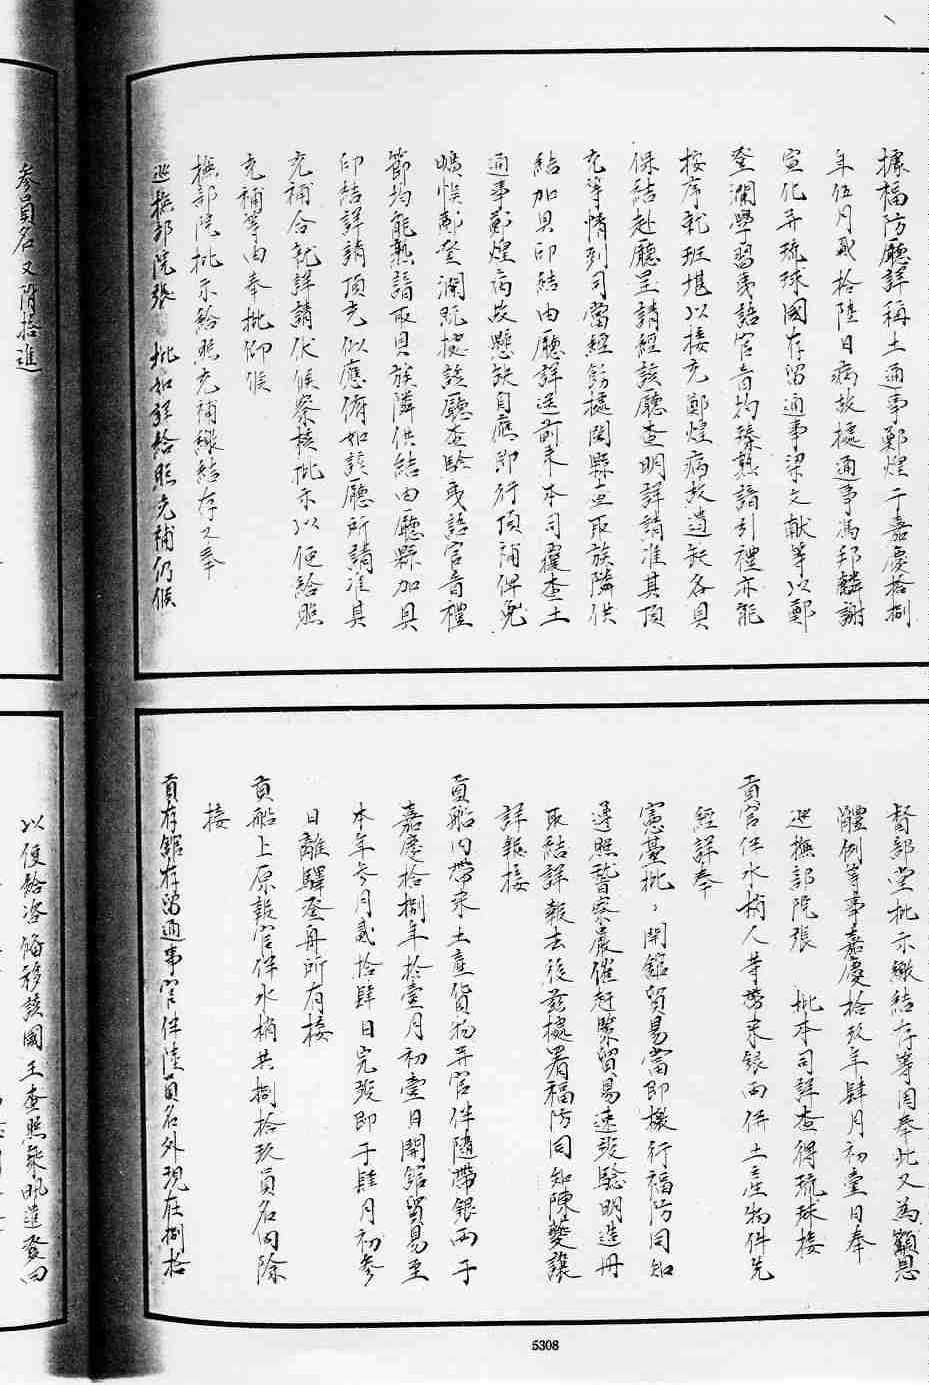 據福防廳詳稱土通事鄭煌于嘉慶拾捌
年伍月貳拾陸日病故據通事馮邦麟謝
宣化并琉球國存留通事梁文献等以鄭
登瀾學習夷語官音均臻熟諳引禮亦能
按序就班堪以接充鄭煌病故遺缺各具
保結赴廳呈請經該廳查明詳請准其頂
充等情到司當經飭據閩縣查取族隣供
結加具印結由廳詳送前來本司覆查土
通事鄭煌病故懸缺自應即行頂補俾免
曠悞鄭登瀾既據該廳查驗夷語官音禮
節均能熟諳取具族隣供結由廳縣加具
印結詳請頂充似應俯如該廳所請准其
充補合就詳請伏候察核批示以便給照
充補等由奉批仰候
撫部院批示給照充補繳結存又奉
巡撫部院張 批如詳給照充補仍候
叁員名又階拾進
督部堂批示繳結存等因奉此又為籲恩
體例等事嘉慶拾玖年肆月初壹日奉
巡撫部院張 批本司詳查得琉球接
貢官伴水梢人等帶來銀両併土產物件先
經詳奉
憲臺批開館貿易當即檄行福防同知
遵照督察嚴催赶緊貿易速竣驗明造冊
取結詳報去後茲據署福防同知陳夔讓
詳報接
貢船內帶來土產貨物并官伴隨帶銀両于
嘉慶拾捌年拾壹月初壹日開館貿易至
本年叁月貳拾肆日完竣即于肆月初叁
日離驛登舟所有接
貢船上原報官伴水梢共捌拾玖員名內除
接
貢存館存留通事官伴陸員名外現在捌拾
以便給咨俻移該國王查照乘帆進發回
5308